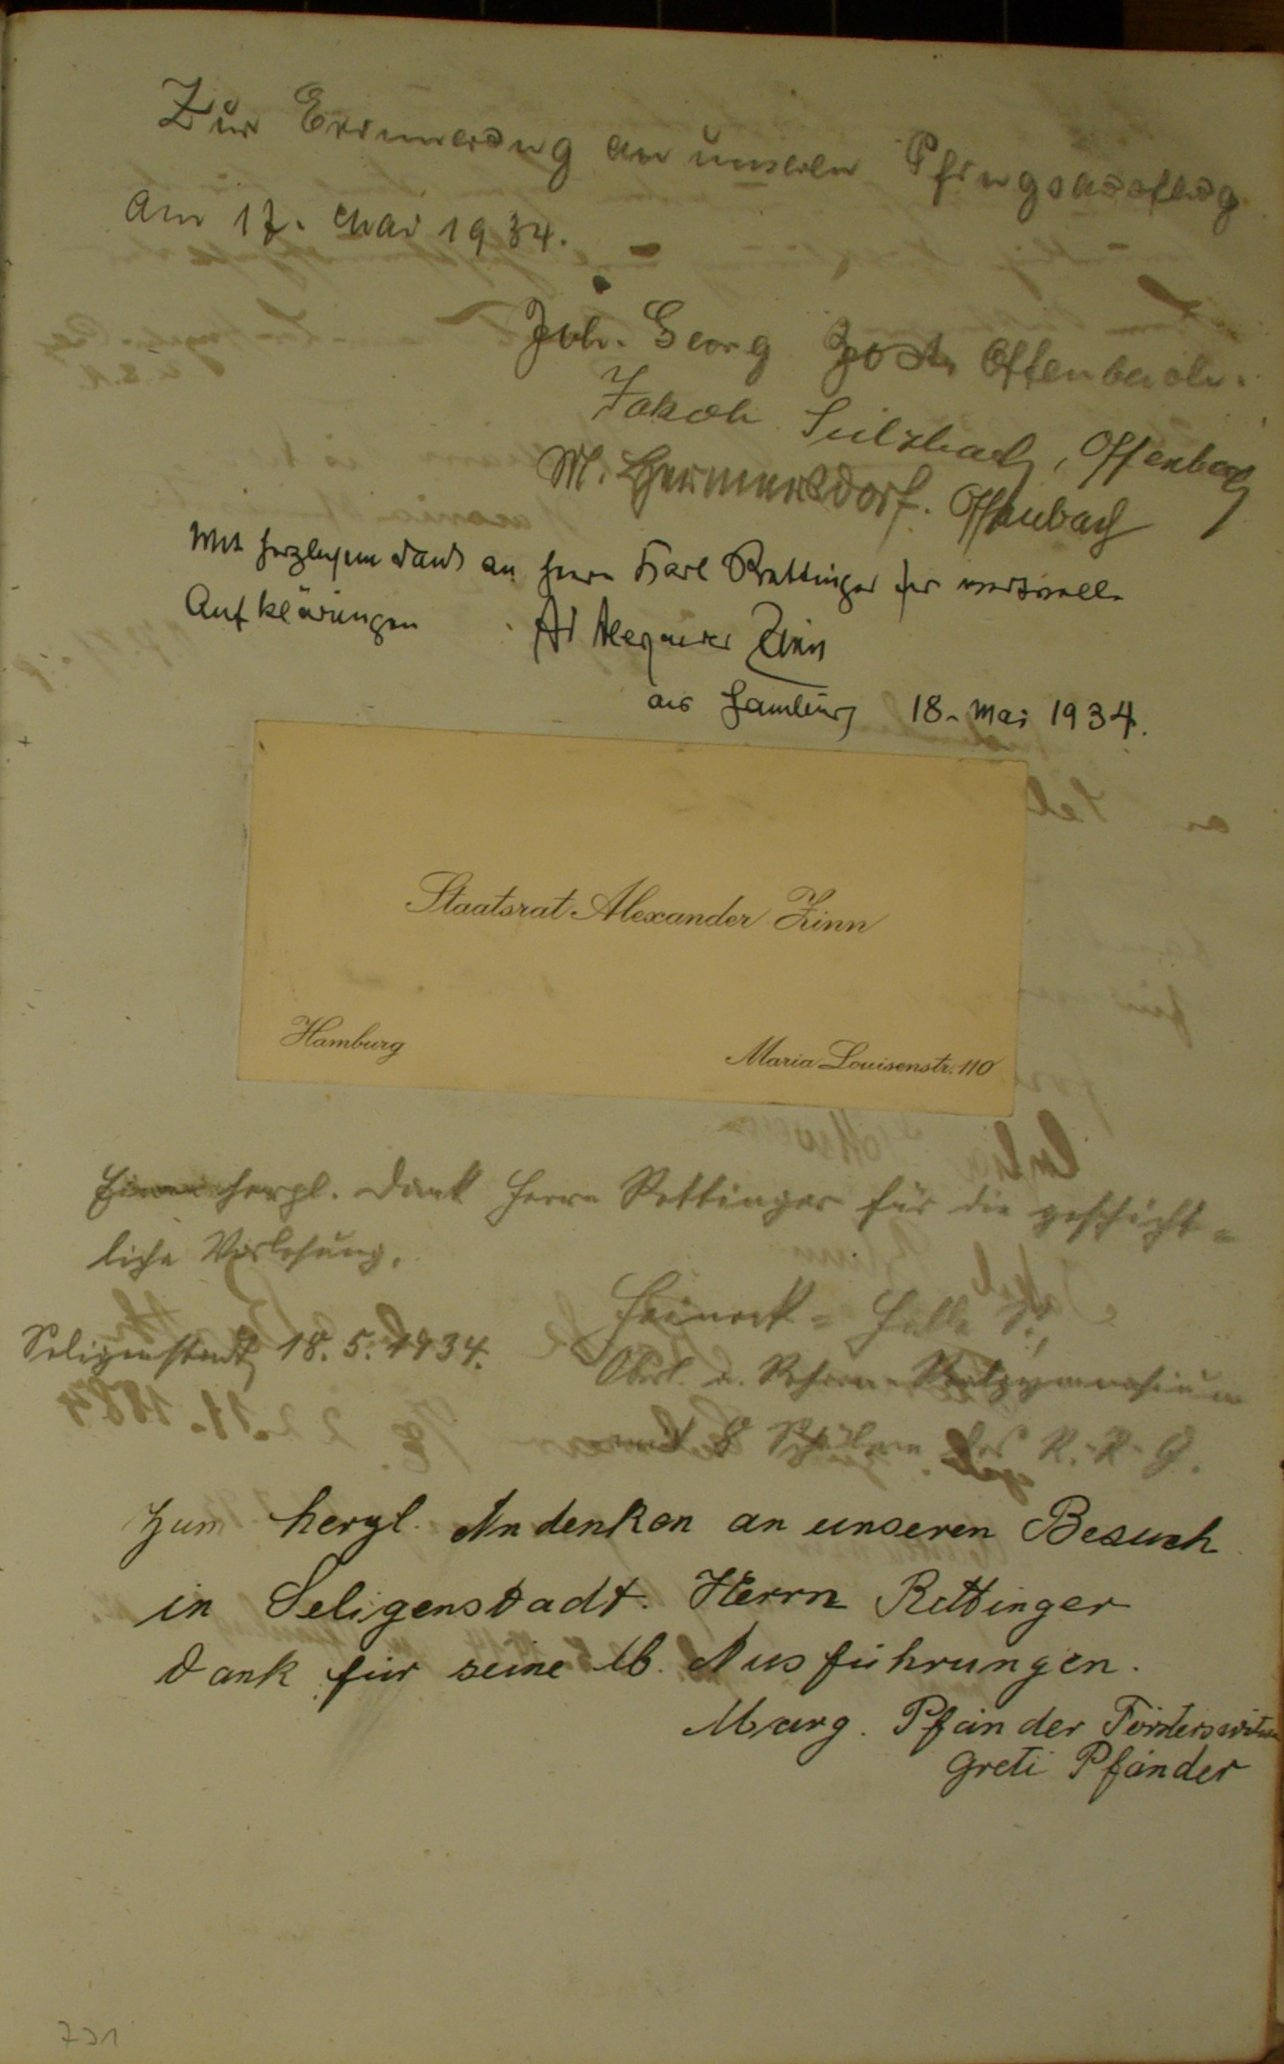 Zur Erinnerung an unseren Pfingsausflug
am 17. Mai 1934.
Joh. Georg Jost, Offenbach.
Jakob Sulzbach, Offenbach
M. Hermersdorf. Offenbach
Mit herzlichem Dank an Herrn Karl Rettinger für wertvolle
Aufklärungen Alexander Zinn
aus Hamburg 18. Mai 1934.
Staatsrat Alexander Zinn
Hamburg
Maria Louisenstr. 110
herzl. Dank Herrn Rettinger für die geschicht-
liche Vorlesung.
Halle
Seligenstadt, 18. 5. 1934.
Oberl. a. Reform-Realgymnasium
8 Schülern des R.-R.-G.
Zum herzl. Andenken an unseren Besuch
in Seligenstadt. Herrn Rettinger
Dank für seine lb. Ausführungen.
Marg. Pfänder Försterswitwe
Greti Pfänder
731